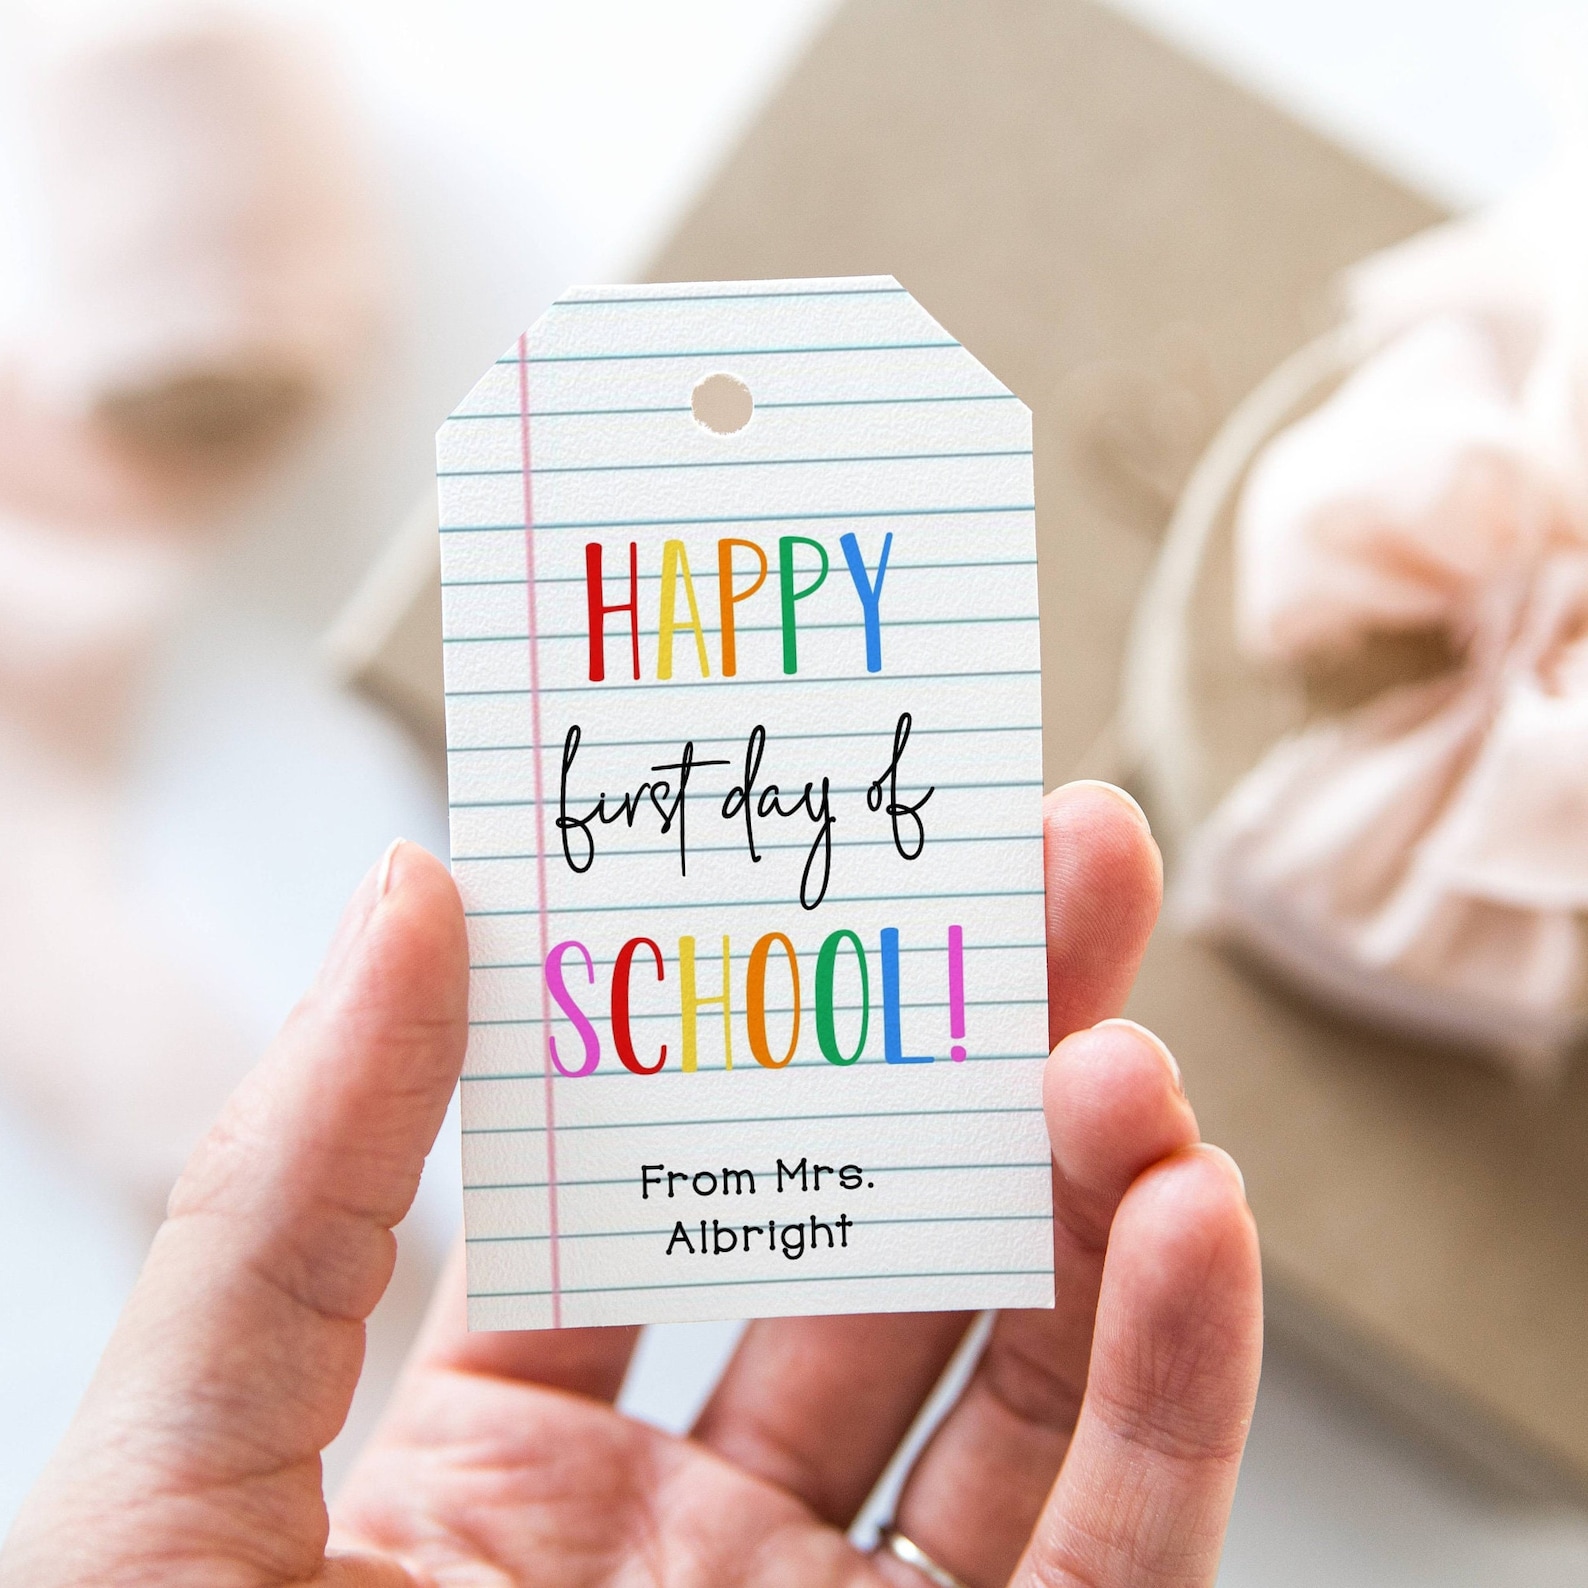 HAPPY
first day of
SCHOOL!
From Mrs.
Albright